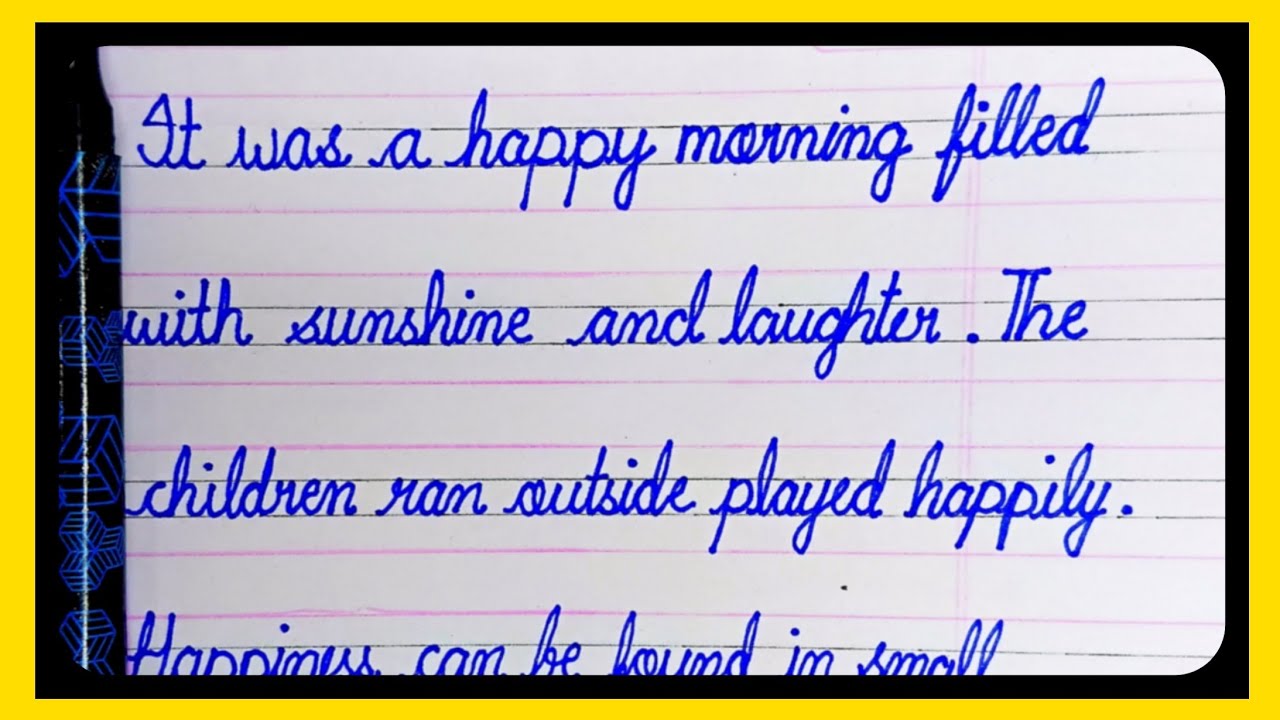 It was a happy morning filled
with sunshine and laughter. The
children ran outside played happily.
Happiness can be found in small